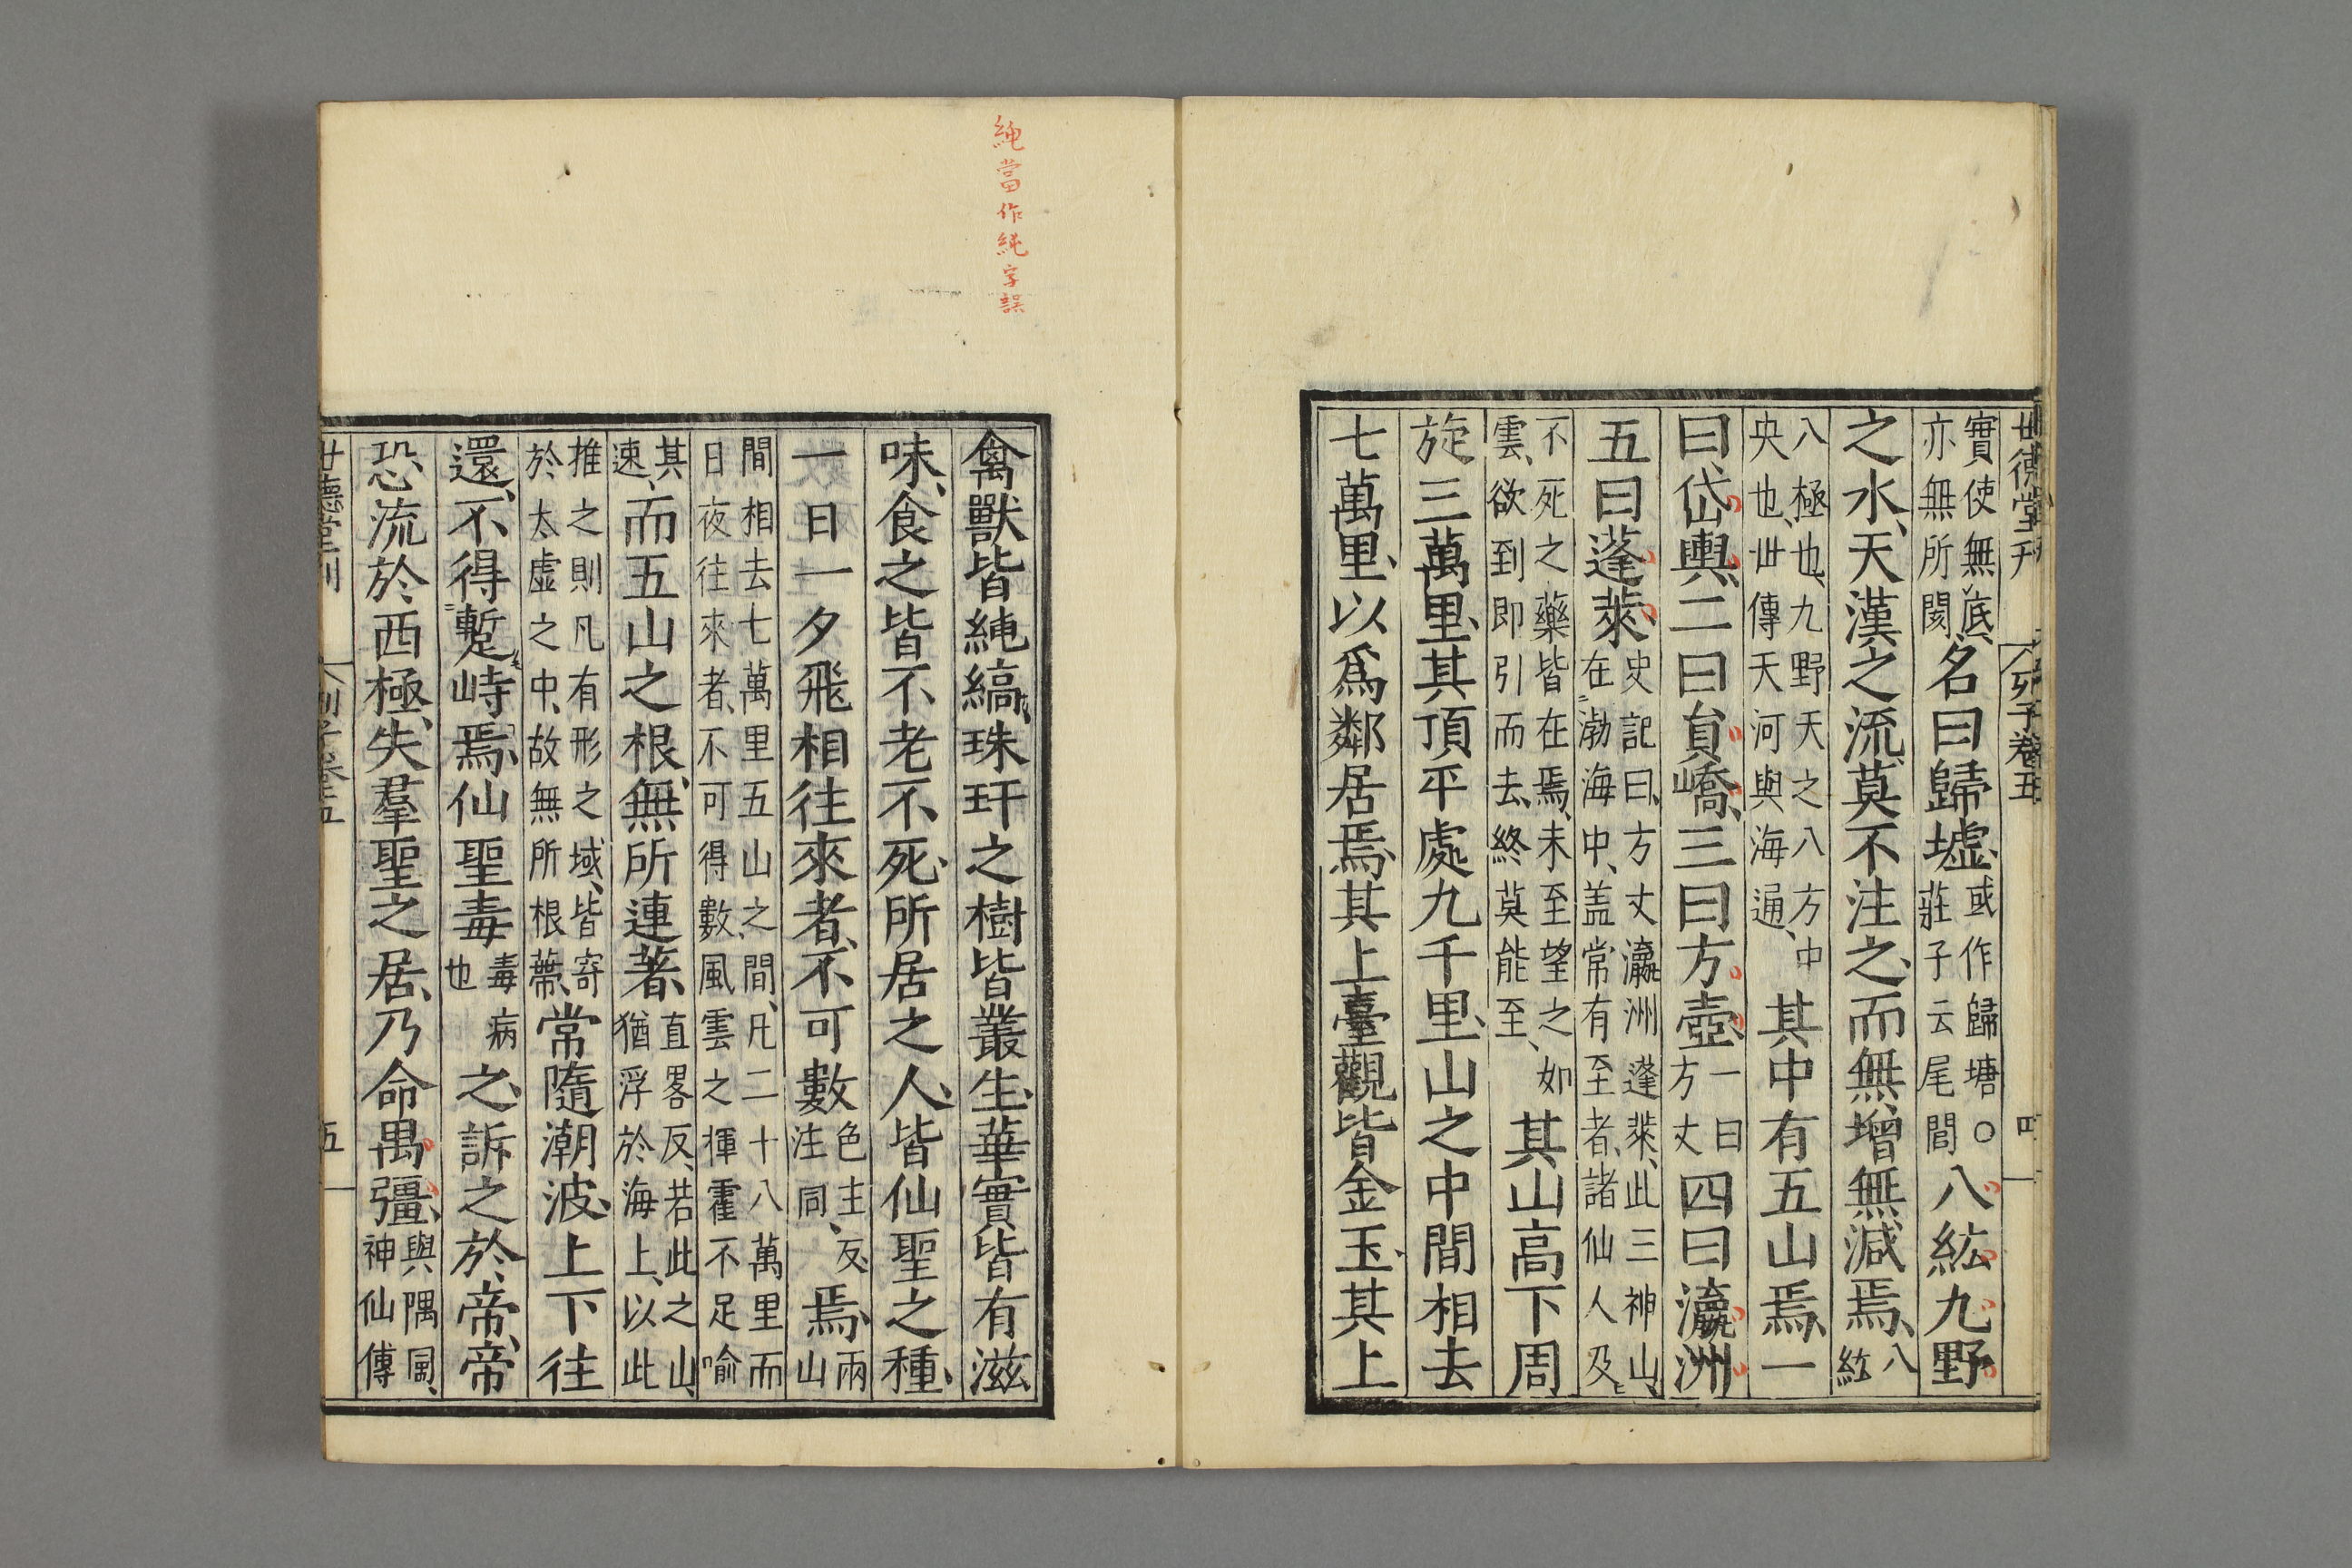 世德堂刊　列子卷五　四
實使無底亦無所閡名曰歸墟或作歸塘○莊子云尾閭八紘九野
之水天漢之流莫不注之而無增無減焉八紘
八極也九野天之八方中央也世傳天河與海通其中有五山焉一
曰岱輿二曰員嶠三曰方壺一曰方丈四曰瀛洲
五曰蓬萊史記曰方丈瀛洲蓬萊此三神山在渤海中盖常有至者諸仙人及
不死之藥皆在焉未至望之如雲欲到即引而去終莫能至其山高下周
旋三萬里其頂平處九千里山之中間相去
七萬里以爲鄰居焉其上臺觀皆金玉其上
繩當作純字誤
禽獸皆繩縞珠玕之樹皆叢生華實皆有滋
味食之皆不老不死所居之人皆仙聖之種
一日一夕飛相往來者不可數色主反注同焉兩山
間相去七萬里五山之間凡二十八萬里而日夜往來者不可得數風雲之揮霍不足喻
其速而五山之根無所連著直畧反若此之山猶浮於海上以此
推之則凡有形之域皆寄於太虛之中故無所根蔕常隨潮波上下往
還不得蹔峙焉仙聖毒毒病也之訴之於帝帝
恐流於西極失羣聖之居乃命禺彊與隅同神仙傳
世德堂刊　列子卷五　五